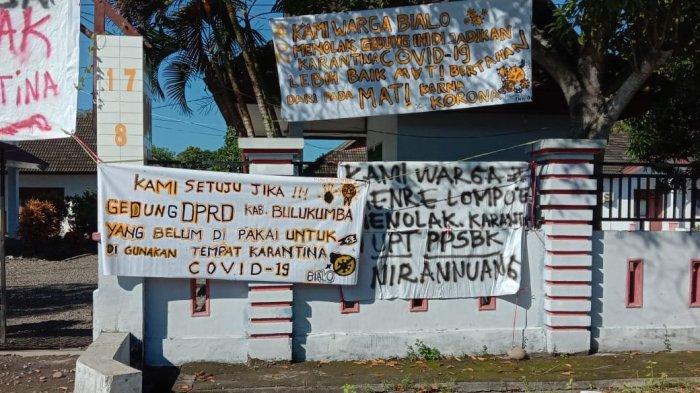 AK
NTINA
17
8
KAMI WARGA BIALO
MENOLAK GEDUNG INI DI JADIKAN
KARANTINA COVID-19
LEBIH BAIK MATI BERTAHAN
DARI PADA MATI KARNA
KORONA
KAMI SETUJU JIKA !!!
GEDUNG DPRD KAB. BULUKUMBA
YANG BELUM DI PAKAI UNTUK
DI GUNAKAN TEMPAT KARANTINA
COVID-19
BIALO
KAMI WARGA
ENRE LOMPO
MENOLAK KARANTIN
UPT PPSBK
NIRANNUANG